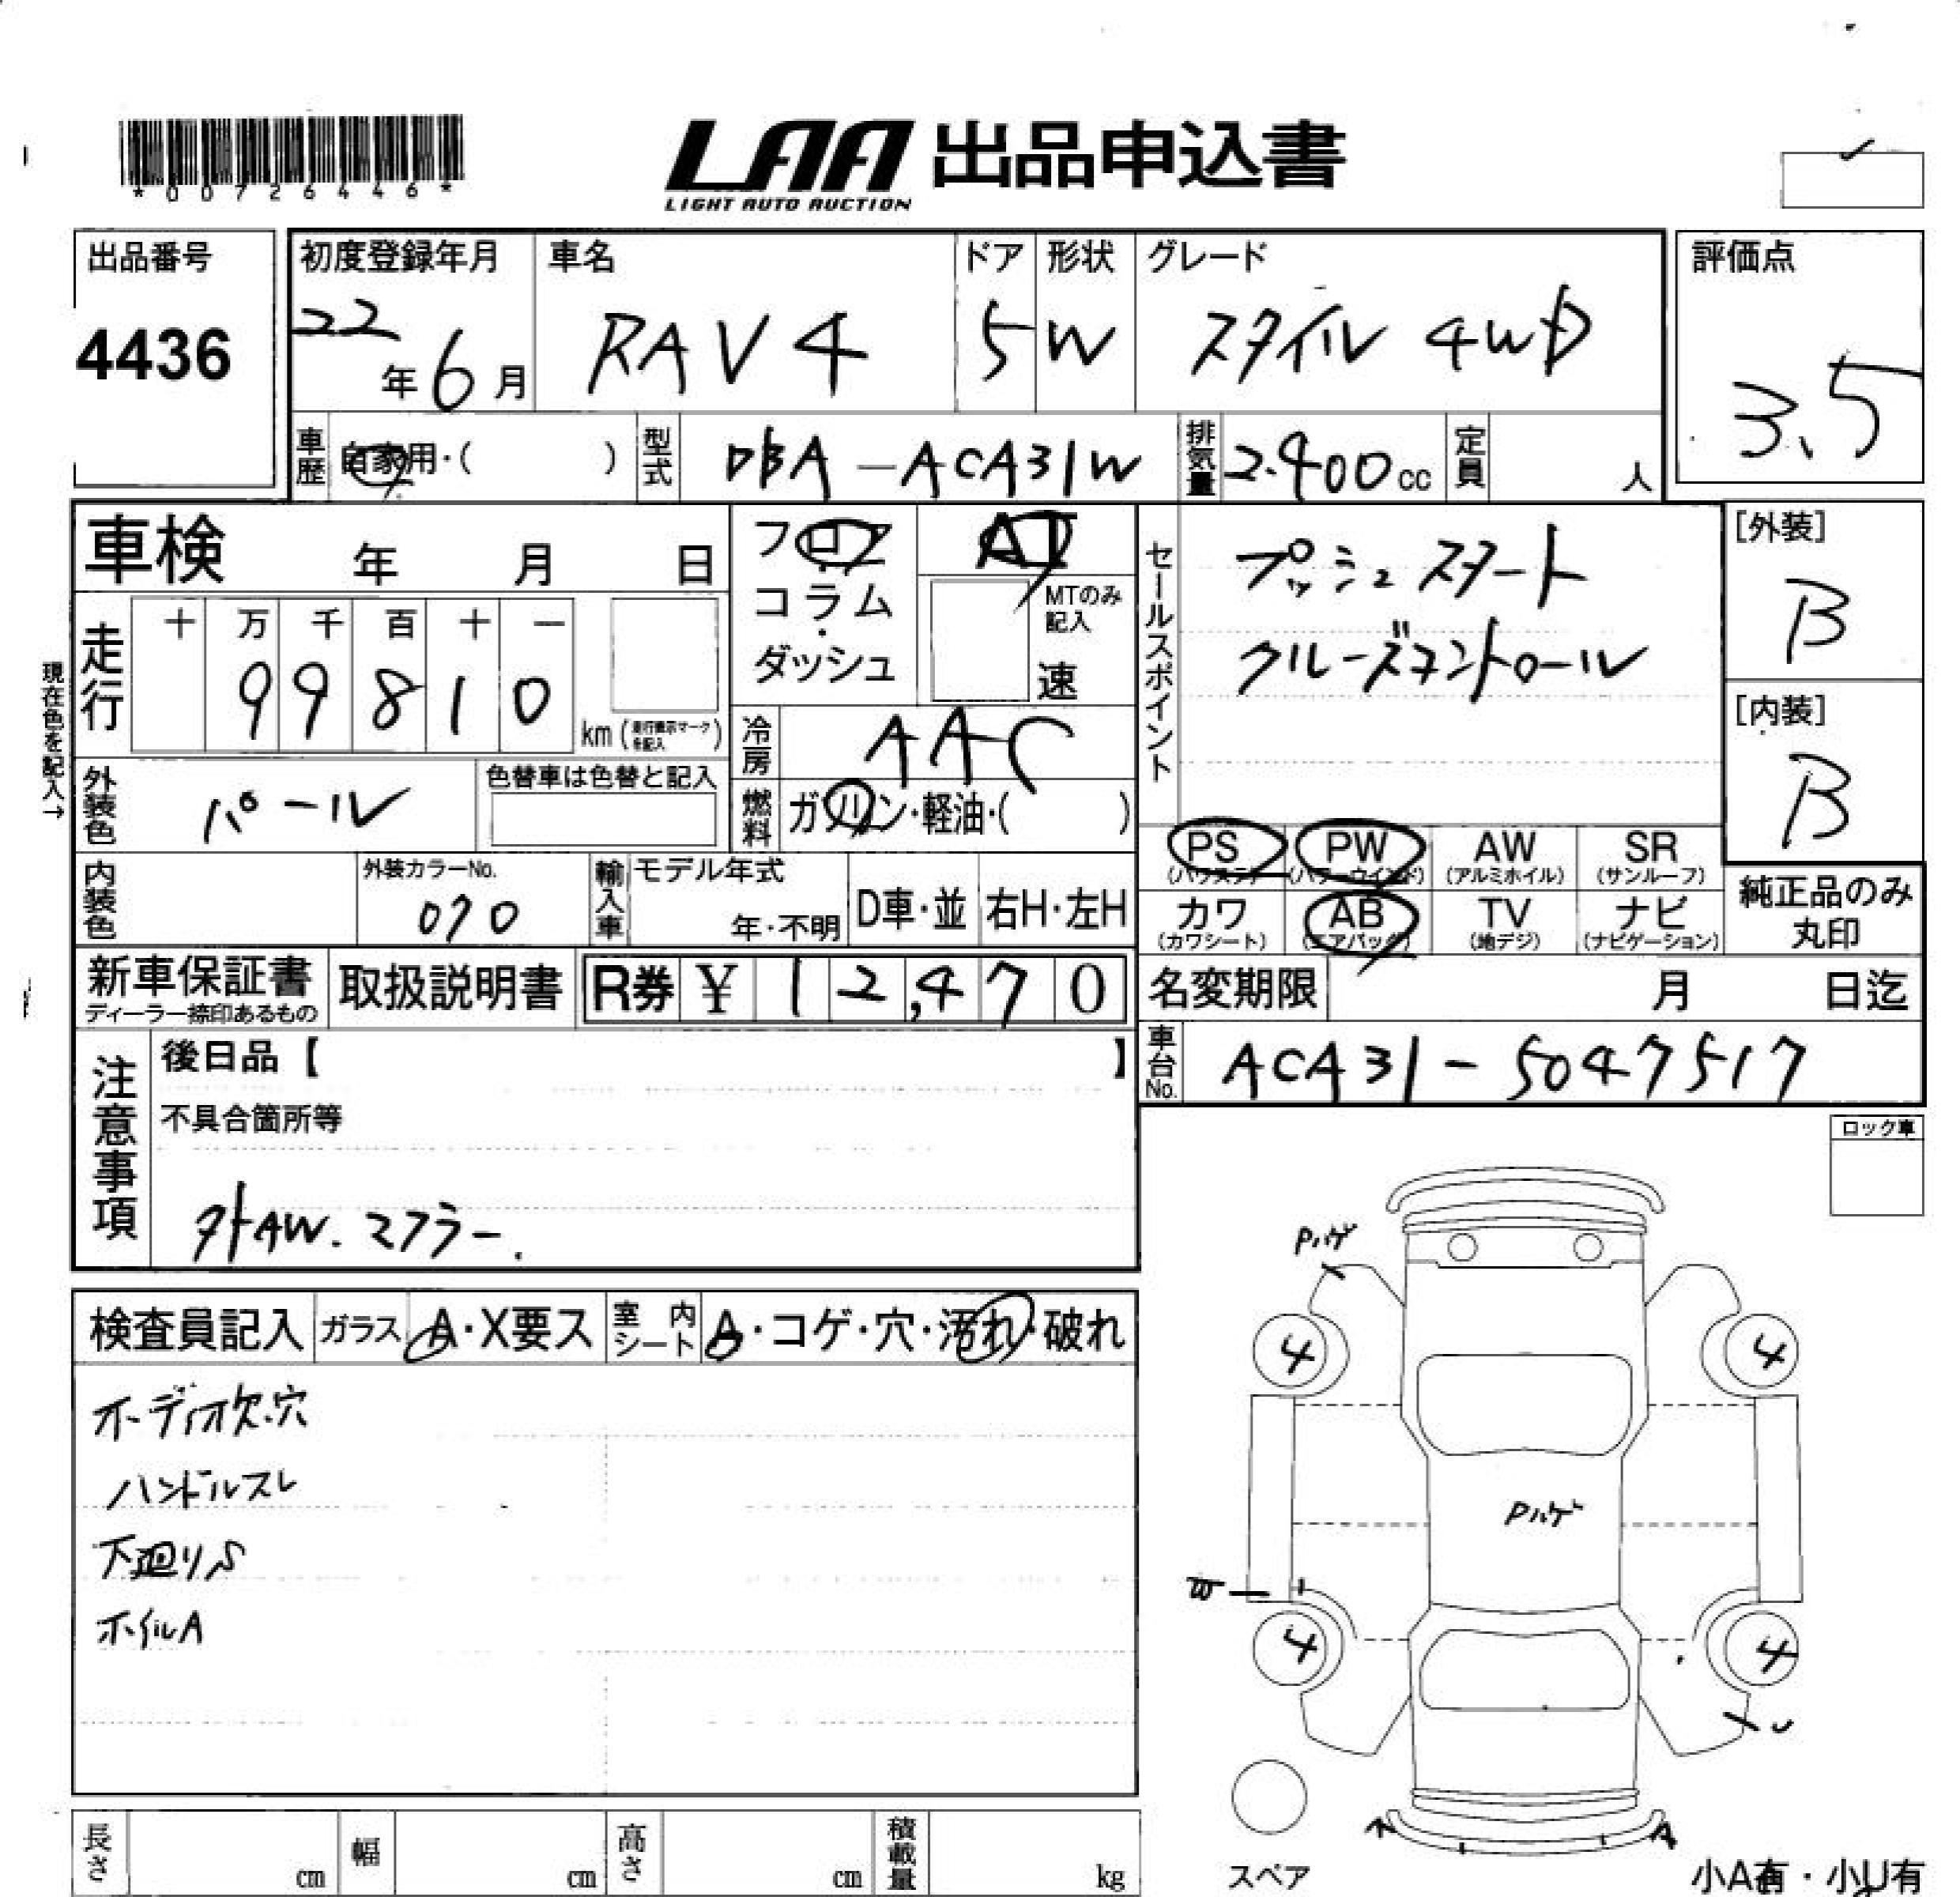 *00726446*
LAA 出品申込書
LIGHT AUTO AUCTION
出品番号
4436
初度登録年月
22年6月
車名
RAV4
ドア
5
形状
W
グレード
スタイル 4WD
評価点
3.5
車歴
自家用・( )
型式
DBA-ACA31W
排気量
2.400cc
定員
人
車検 年 月 日
走行
十 万 千 百 十 一
99810
km (走行表示マークを記入)
現在色を記入→
フロア
コラム
・
ダッシュ
AT
MTのみ記入
速
冷房
AAC
燃料
ガソリン・軽油・( )
セールスポイント
プッシュスタート
クルーズコントロール
[外装]
B
[内装]
B
外装色
パール
色替車は色替と記入
内装色
外装カラーNo.
070
輸入車
モデル年式
年・不明
D車・並
右H・左H
PS
(パワステ)
PW
(パワーウインド)
AW
(アルミホイル)
SR
(サンルーフ)
カワ
(カワシート)
AB
(エアバッグ)
TV
(地デジ)
ナビ
(ナビゲーション)
純正品のみ
丸印
新車保証書
ディーラー捺印あるもの
取扱説明書
R券 ¥ 12,470
名変期限 月 日迄
車台No.
ACA31-5047517
注意事項
後日品【 】
不具合箇所等
外AW.マフラー.
ロック車
検査員記入
ガラス
A・X要ス
室内シート
A・コゲ・穴・汚れ・破れ
オーディオ欠.穴
ハンドルスレ
下廻りS
ホイルA
Pハゲ
4
4
Pハゲ
W
4
4
U
A
スペア
小A有・小U有
長さ
cm
幅
cm
高さ
cm
積載量
kg